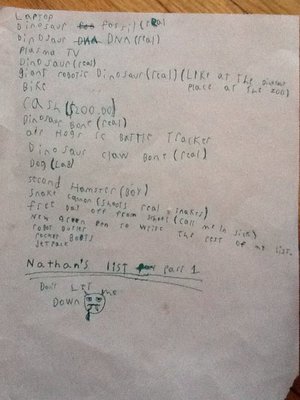 Laptop
Dinosaur fossil (real
Dinosaur DNA (real)
Plasma TV
Dinosaur (real)
giant robotic Dinosaur (real) (Like at the
Bike place at the zoo)
cash ($200.00)
Dinosaur Bone (real)
air Hogs RC Battle Tracker
Dinosaur claw Bone (real)
Dog (Lab)
second Hamster (Boy)
Snake cannon (shoots real snakes)
free Day off from school (call me in sick)
New green pen to write the rest of my list.
robot butler
rocket Boots
Jetpack
Nathan's list part 1
Don't Let me
DOWN